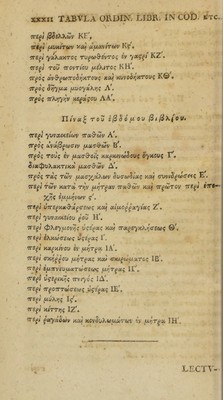 XXXII TABVLA ORDIN. LIBR. IN COD. ETC.
περὶ βδελλῶν ΚϚ΄,
περὶ μυκήτων καὶ
περὶ γάλακτος τυρωθέντος ἐν γαστρὶ ΚΖ΄.
περὶ τοῦ ποντίου μέλιτος ΚΗ΄.
πρὸς ἀνθρωποδήκτους καὶ κυνοδήκτους ΚΘ΄.
πρὸς δῆγμα μυογάλης Λ΄.
πρὸς πληγὴν κεράςου ΛΑ΄.
Πίναξ τοῦ ἑβδόμου βιβλίου.
περὶ γυναικείων παθῶν Α΄.
πρὸς ἀνάβρωσιν μασθῶν Β΄.
πρὸς τοὺς ἐν μασθοῖς καρκινώδους ὄγκους Γ΄.
διαφυλακτικὰ μασθῶν Δ΄.
πρὸς τὰς τῶν μασχάλων δυσωδίας καὶ συνιδρώσεις Ε΄.
περὶ τῶν κατὰ τὴν μήτραν παθῶν καὶ πρῶτον περὶ ἐπο-
χῆς ἐμμήνων ϛ΄.
περὶ ὑπερκαθάρσεως καὶ αἱμοῤῥαγίας Ζ΄.
περὶ γυναικείου ῥοῦ Η΄.
περὶ φλεγμονῆς ὑστέρας καὶ παρεγκλίσεως Θ΄.
περὶ ἑλκώσεως ὑστέρας Ι΄.
περὶ καρκίνου ἐν μήτρᾳ ΙΑ΄.
περὶ σκίρρου μήτρας καὶ σκιρώματος ΙΒ΄.
περὶ ἐμπνευματώσεως μήτρας ΙΓ΄.
περὶ ὑστερικῆς πνιγὸς ΙΔ΄.
περὶ προπτώσεως ὑστέρας ΙΕ΄.
περὶ μύλης Ιϛ΄.
περὶ κίττης ΙΖ΄.
περὶ ῥαγάδων καὶ κονδυλωμάτων ἐν μήτρᾳ ΙΗ΄.
LECTV-